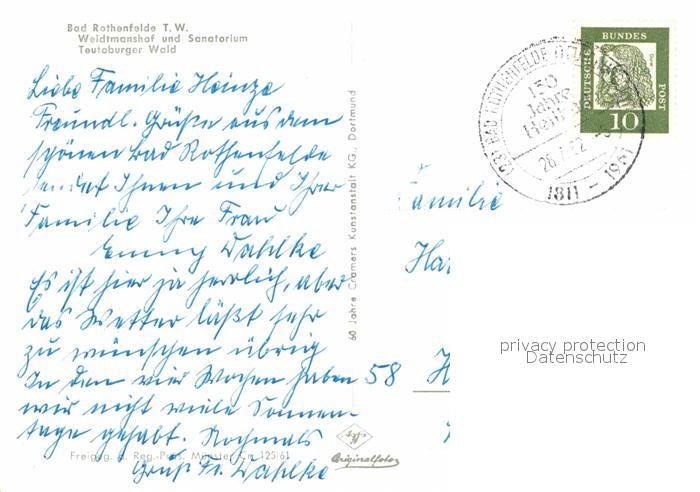 Bad Rothenfelde T. W.
Weidtmanshof und Sanatorium
Teutoburger Wald
Liebe Familie Heinze
Freundl. Grüße aus dem
schönen Bad Rothenfelde
sendet Ihnen und Ihrer
Familie Ihre Frau
Emmy Dahlke
Es ist hier ja herrlich, aber
das Wetter läßt sehr
zu wünschen übrig
In den vier Wochen haben
wir nicht viele Sonnen-
tage gehabt. Nochmals
Gruß Fr. Dahlke
Freigeg. d. Reg.-Präs. Münster Cn 125/61
60 Jahre Cramers Kunstanstalt KG., Dortmund
Originalfoto
DEUTSCHE BUNDESPOST
10
BAD ROTHENFELDE
150
Jahre
1811 - 1961
Familie
58
privacy protection
Datenschutz